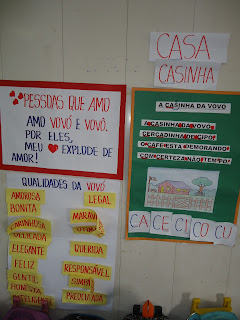 PESSOAS QUE AMO
AMO VOVÓ E VOVÔ.
POR ELES,
MEU EXPLODE DE
AMOR!
QUALIDADES DA VOVÓ
AMOROSA
BONITA
CARINHOSA
DELICADA
ELEGANTE
FELIZ
GENTIL
HONESTA
INTELIGENTE
LEGAL
QUERIDA
RESPONSÁVEL
CASA
CASINHA
A CASINHA DA VOVÓ
A CASINHA DA VOVÓ
CERCADINHA DE CIPÓ
O CAFÉ ESTÁ DEMORANDO
COM CERTEZA NÃO TEM PÓ!
CA CE CI CO CU